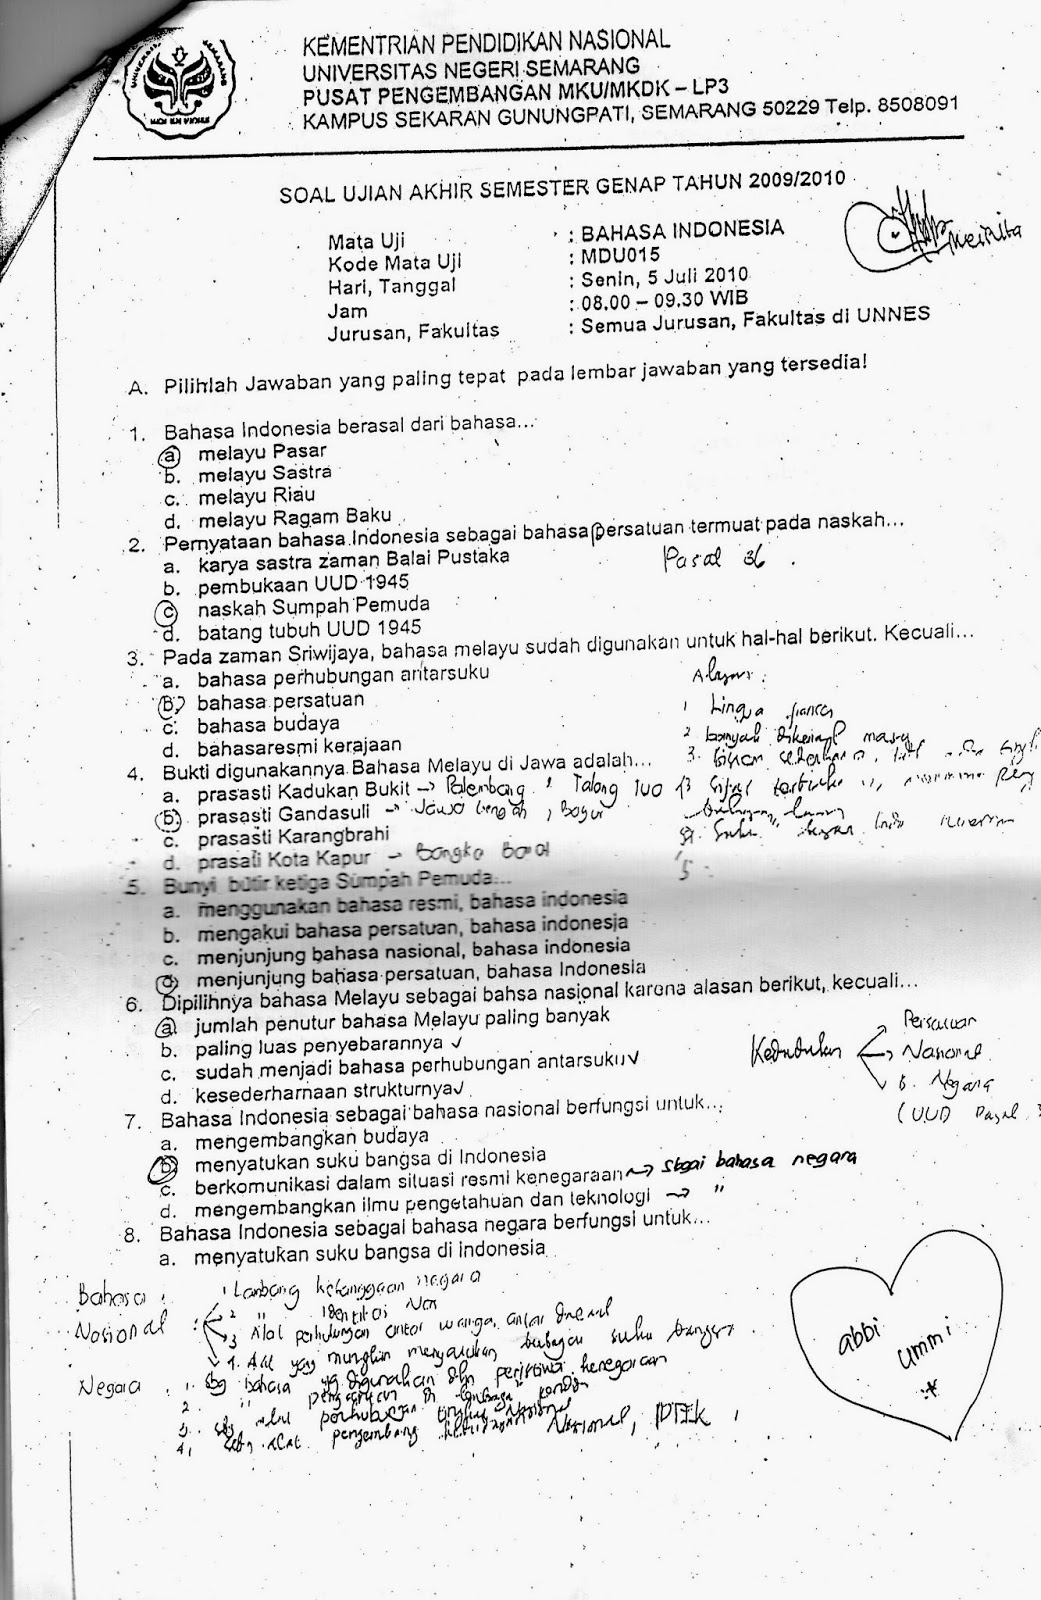 KEMENTRIAN PENDIDIKAN NASIONAL
UNIVERSITAS NEGERI SEMARANG
PUSAT PENGEMBANGAN MKU/MKDK – LP3
KAMPUS SEKARAN GUNUNGPATI, SEMARANG 50229 Telp. 8508091
SOAL UJIAN AKHIR SEMESTER GENAP TAHUN 2009/2010
Mata Uji : BAHASA INDONESIA
Kode Mata Uji : MDU015
Hari, Tanggal : Senin, 5 Juli 2010
Jam : 08.00 – 09.30 WIB
Jurusan, Fakultas : Semua Jurusan, Fakultas di UNNES
Meirita
A. Pilihlah Jawaban yang paling tepat pada lembar jawaban yang tersedia!
1. Bahasa Indonesia berasal dari bahasa...
a melayu Pasar
b. melayu Sastra
c. melayu Riau
d. melayu Ragam Baku
2. Pernyataan bahasa Indonesia sebagai bahasa persatuan termuat pada naskah...
a. karya sastra zaman Balai Pustaka
Pasal 36
b. pembukaan UUD 1945
c naskah Sumpah Pemuda
d. batang tubuh UUD 1945
3. Pada zaman Sriwijaya, bahasa melayu sudah digunakan untuk hal-hal berikut. Kecuali...
a. bahasa perhubungan antarsuku
Alasan :
b. bahasa persatuan
1 Lingua franca
c. bahasa budaya
2 banyak
d. bahasaresmi kerajaan
3.
4. Bukti digunakannya Bahasa Melayu di Jawa adalah...
a. prasasti Kadukan Bukit → Palembang, Talang Tuo
b. prasasti Gandasuli → Jawa tengah, Bogor
c. prasasti Karangbrahi
d. prasati Kota Kapur → Bangka Barat
5.
5. Bunyi butir ketiga Sumpah Pemuda...
a. menggunakan bahasa resmi, bahasa indonesia
b. mengakui bahasa persatuan, bahasa indonesia
c. menjunjung bahasa nasional, bahasa indonesia
d menjunjung bahasa persatuan, bahasa Indonesia
6. Dipilihnya bahasa Melayu sebagai bahsa nasional karena alasan berikut, kecuali...
a. jumlah penutur bahasa Melayu paling banyak
b. paling luas penyebarannya ✓
c. sudah menjadi bahasa perhubungan antarsuku ✓
d. kesederharnaan strukturnya ✓
Kedudukan
Persatuan
Nasional
b. Negara
(UUD Pasal 3
7. Bahasa Indonesia sebagai bahasa nasional berfungsi untuk...
a. mengembangkan budaya
b menyatukan suku bangsa di Indonesia
c. berkomunikasi dalam situasi resmi kenegaraan → sbgai bahasa negara
d. mengembangkan ilmu pengetahuan dan teknologi → "
8. Bahasa Indonesia sebagai bahasa negara berfungsi untuk...
a. menyatukan suku bangsa di indonesia
Bahasa :
Nasional :
1 Lambang kebanggaan negara
2 " Identitas Nas
3 Alat perhubungan antar warga, antar daerah
4. Alat yang mungkin menyatukan berbagai suku bangsa
Negara :
1. sbg bahasa yg digunakan dlm peristiwa kenegaraan
2. " pengantar
3. perhubungan tingkat Nasional
4. sbg alat pengembang Nasional, IPTEK
abbi
ummi